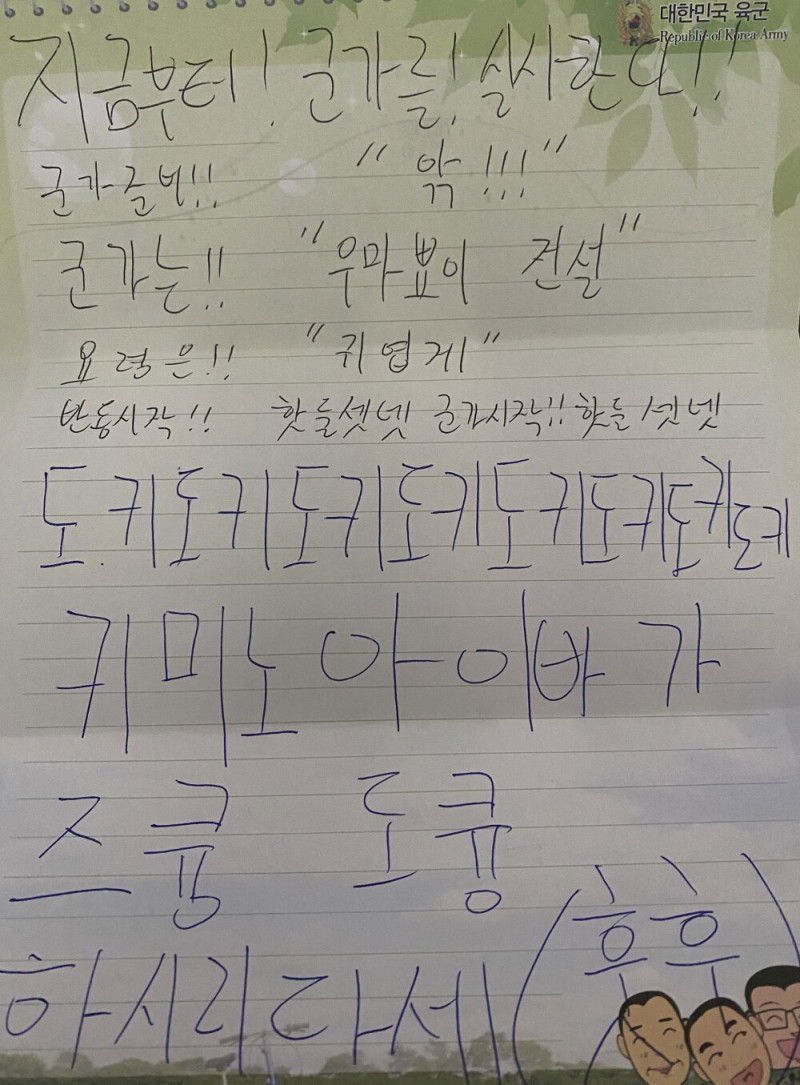 대한민국 육군
Republic of Korea Army
지금부터! 군가를! 실시한다!!
군가준비!! "악!!!"
군가는!! "우마뾰이 전설"
요령은!! "귀엽게"
반동시작!! 핫둘셋넷 군가시작!! 핫둘셋넷
도.키도키도키도키도키도키도키도키
키미노아이바가
즈큥 도큥
하시리다세 (후후